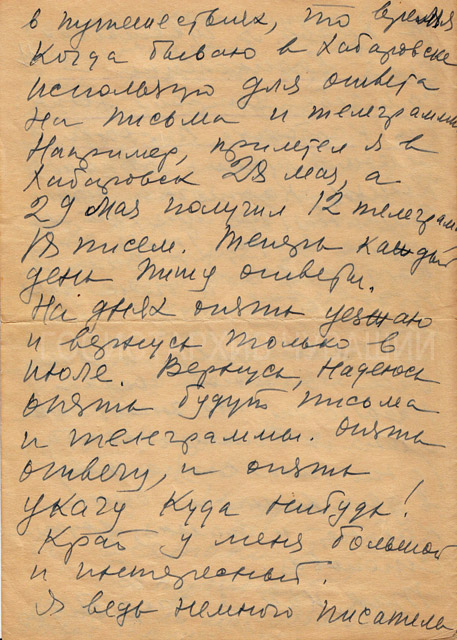 в путешествиях, то время
Когда бываю в Хабаровске
использую для ответа
на письма и телеграммы
Например, прилетел я в
Хабаровск 28 мая, а
29 мая получил 12 телеграмм
18 писем. Теперь каждый
день пишу ответы.
На днях опять уезжаю
и вернусь только в
июле. Вернусь, надеюсь
опять будут письма
и телеграммы. Опять
отвечу, и опять
укачу куда нибудь!
Край у меня большой
и интересный.
Я ведь немного писатель